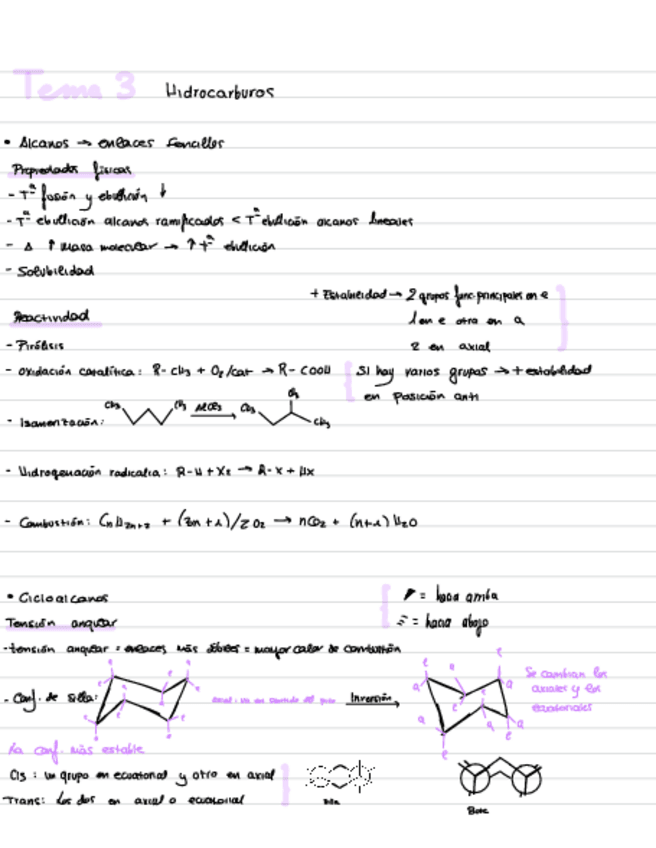 Tema 3 Hidrocarburos
• Alcanos → enlaces sencillos
Propiedades físicas
- Tª fusión y ebullición ↓
- Tª ebullición alcanos ramificados < Tª ebullición alcanos lineales
- Δ ↑ masa molecular → ↑ Tª ebullición
- Solubilidad
+ Estabilidad → 2 grupos func. principales en e
1 en e otro en a
2 en axial
Reactividad
- Pirólisis
- Oxidación catalítica: R-CH3 + O2/cat → R-COOH
Si hay varios grupos → + estabilidad
en posición anti
- Isomerización: CH3 CH3 AlCl3 → CH3 CH3 CH3
- Hidrogenación radicalia: R-H + X2 → R-X + HX
- Combustión: CnH2n+2 + (3n+1)/2 O2 → nCO2 + (n+1) H2O
• Cicloalcanos
= hacia arriba
= hacia abajo
Tensión angular
- tensión angular = enlaces más débiles = mayor calor de combustión
- Conf. de silla:
Inversión
Se cambian los
axiales y los
ecuatoriales
La conf. más estable
Cis: un grupo en ecuatorial y otro en axial
Trans: Los dos en axial o ecuatorial
Bote